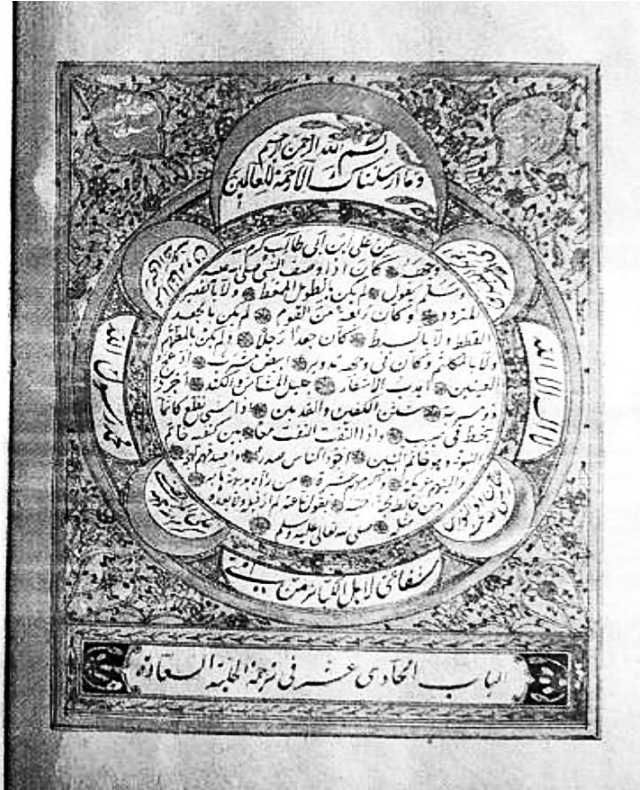 بسم الله الرحمن الرحيم
وما ارسلناك الا رحمة للعالمين
عن علي ابن ابي طالب كرم
وجهه كان اذا وصف النبي صلى الله عليه
وسلم يقول لم يكن بالطويل الممغط ولا بالقصير
المتردد وكان ربعة من القوم لم يكن بالجعد
القطط ولا بالسبط كان جعدا رجلا ولم يكن بالمطهم
ولا بالمكلثم وكان في وجهه تدوير ابيض مشرب ادعج
العينين اهدب الاشفار جليل المشاش والكتد اجرد
ذو مسربة شثن الكفين والقدمين اذا مشى تقلع كانما
ينحط في صبب واذا التفت التفت معا بين كتفيه خاتم
النبوة وهو خاتم النبيين اجود الناس صدرا واصدقهم لهجة
والينهم عريكة واكرمهم عشرة من رآه بديهة هابه
ومن خالطه معرفة احبه يقول ناعته لم ار قبله ولا بعده
مثله صلى الله تعالى عليه وسلم
لا اله الا الله
محمد رسول الله
شفاعتي لاهل الكبائر من امتي
الباب الحادي عشر في ترجمة الحلية السعادة